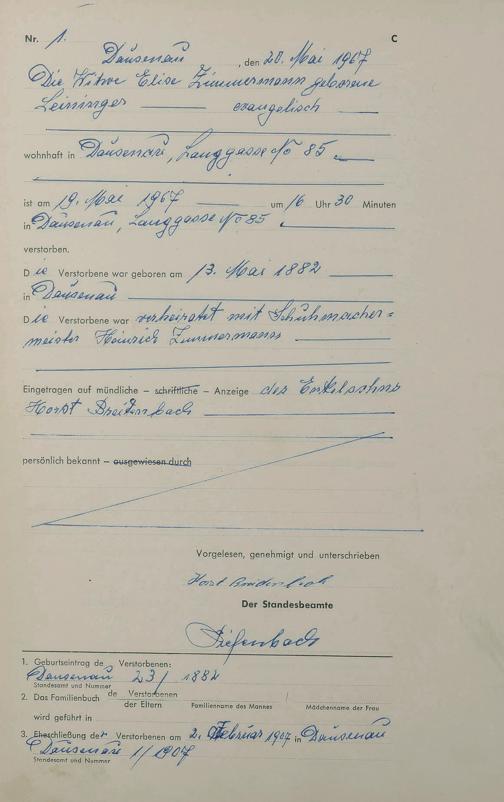 Nr. 1. C
Dausenau, den 20. Mai 1967
Die Witwe Elise Zimmermann geborene
Leininger evangelisch
wohnhaft in Dausenau, Langgasse No 85
ist am 19. Mai 1967 um 16 Uhr 30 Minuten
in Dausenau, Langgasse No 85
verstorben.
Die Verstorbene war geboren am 13. Mai 1882
in Dausenau
Die Verstorbene war verheiratet mit Schuhmacher=
meister Heinrich Zimmermann
Eingetragen auf mündliche – schriftliche – Anzeige des Enkelsohns
Horst Breitenbach
persönlich bekannt – ausgewiesen durch
Vorgelesen, genehmigt und unterschrieben
Horst Breitenbach
Der Standesbeamte
Diefenbach
1. Geburtseintrag de Verstorbenen:
Dausenau 23/1882
Standesamt und Nummer
2. Das Familienbuch de Verstorbenen
der Eltern Familienname des Mannes Mädchenname der Frau
wird geführt in
3. Eheschließung der Verstorbenen am 2. Februar 1907 in Dausenau
Dausenau 1/1907
Standesamt und Nummer